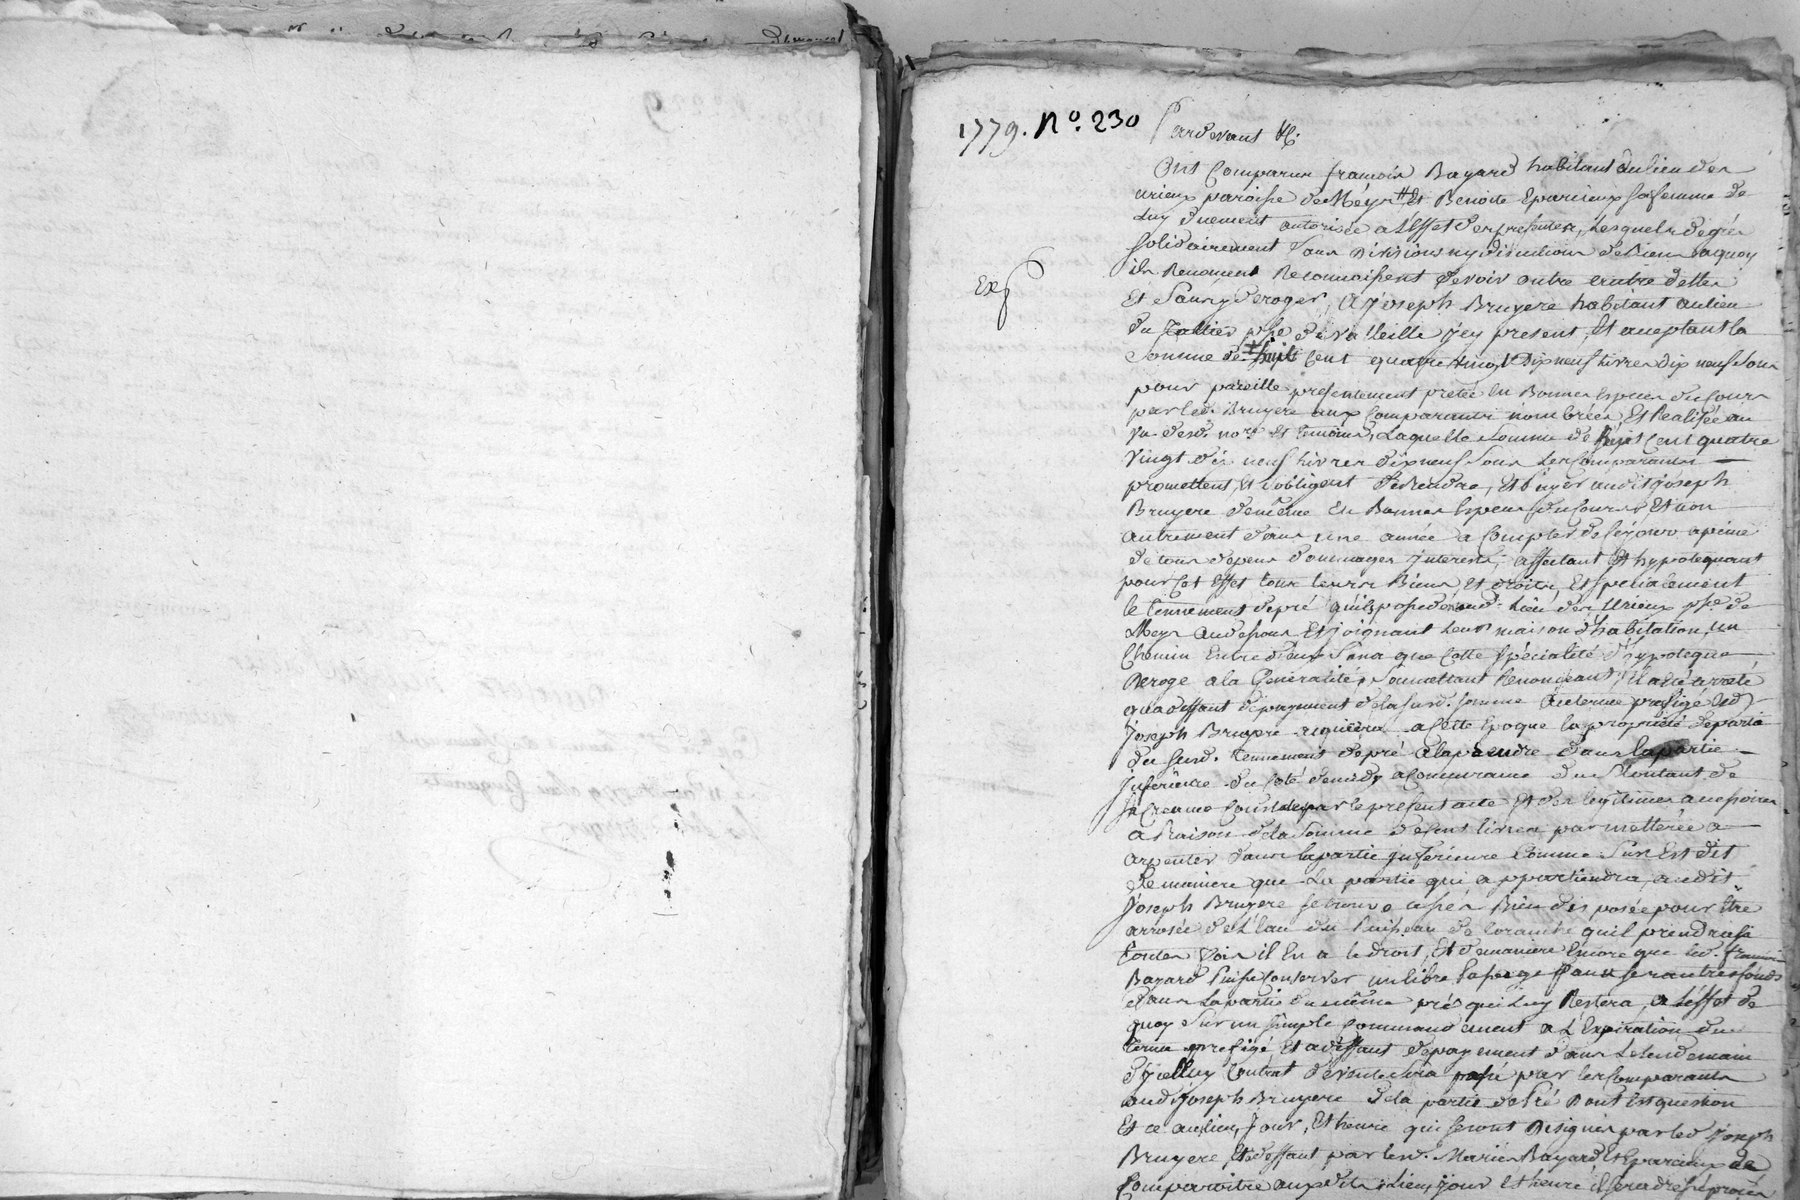 1779. N°. 230
Pardevant &c.
Ont Comparus francois Bayard habitant du lieu des
urieux paroisse de Meys Et Benoite Eparcieux sa femme de
Luy duement autorisée a L'effet des presentes, Lesquels de gré
Solidairement Sans Divisions ny discution de Biens a quoy
ils Renoncent Reconnoissent devoir outre autre dettes
Exp
Et Sans y deroger, A Joseph Bruyere habitant au lieu
du Tallier psse de valleille icy present, Et acceptant la
Somme de huit Cent quatre vingt Dix neuf livres dix neuf Sous
pour pareille presentement pretée En Bonnes Especes du Cours
par led. Bruyere aux Comparants nombrées Et Realisée au
vu desd. nores Et temoins, Laquelle Somme de huit Cent quatre
vingt dix neuf livres dix neuf Sous Les Comparants
promettent, Et s'obligent de Rendre, Et payer audit Joseph
Bruyere de même En Bonnes Especes du Cours Et non
autrement dans une année a Compter de Ce jour a peine
de tous depens dommages interests, affectant Et hypotequant
pour Cet Effet tous leurs Biens Et droits, Et specialement
le tennement de pré quils possedent aud. Lieu des Urieux psse de
Meys au dessous Et joignant Leur maison d'habitation, un
Chemin Entre deux Sans que Cette Spécialité d'hypoteque
Deroge a la Generalité, Soumettant Renonceant, Il a été arreté
qua deffaut de payement de la susd. Somme au terme prefigé led.
Joseph Bruyere aquiera a Cette Epoque la propriété de partie
du susd. tennement de pré a la prendre dans la partie
Inferieure du Coté de midy a Concurrance du Montant de
sa Creance Constatée par le present acte Et des legitimes accessoires
a Raison de la Somme de Cent livres par metterée a
arpenter dans la partie inferieure Comme Sus Est dit
De maniere que La partie qui appartiendra, audit
Joseph Bruyere se trouve assés Bien disposée pour être
arrosée de L'eau du Ruisseau de qu'il prendra
toutes fois il En a le droit, Et de maniere Encore que led. francois
Bayard Puisse Conserver un libre passage Pour ses autres fonds
dans La partie du même pré qui Luy Restera, a l'effet de
quoy Sur un simple Commandement a L'Expiration du
terme prefigé Et a deffaut de payement dans Le lendemain
d'icelluy Contrat de vente Sera passé par les Comparants
audit Joseph Bruyere de la partie de Pré Dont Est question
Et ce au lieu, Jour, Et heure qui seront Designés par led. Joseph
Bruyere, Et deffaut par lesd. Mariés Bayard Et Eparcieux de
Comparoitre auxdits Lieu, jour Et heure